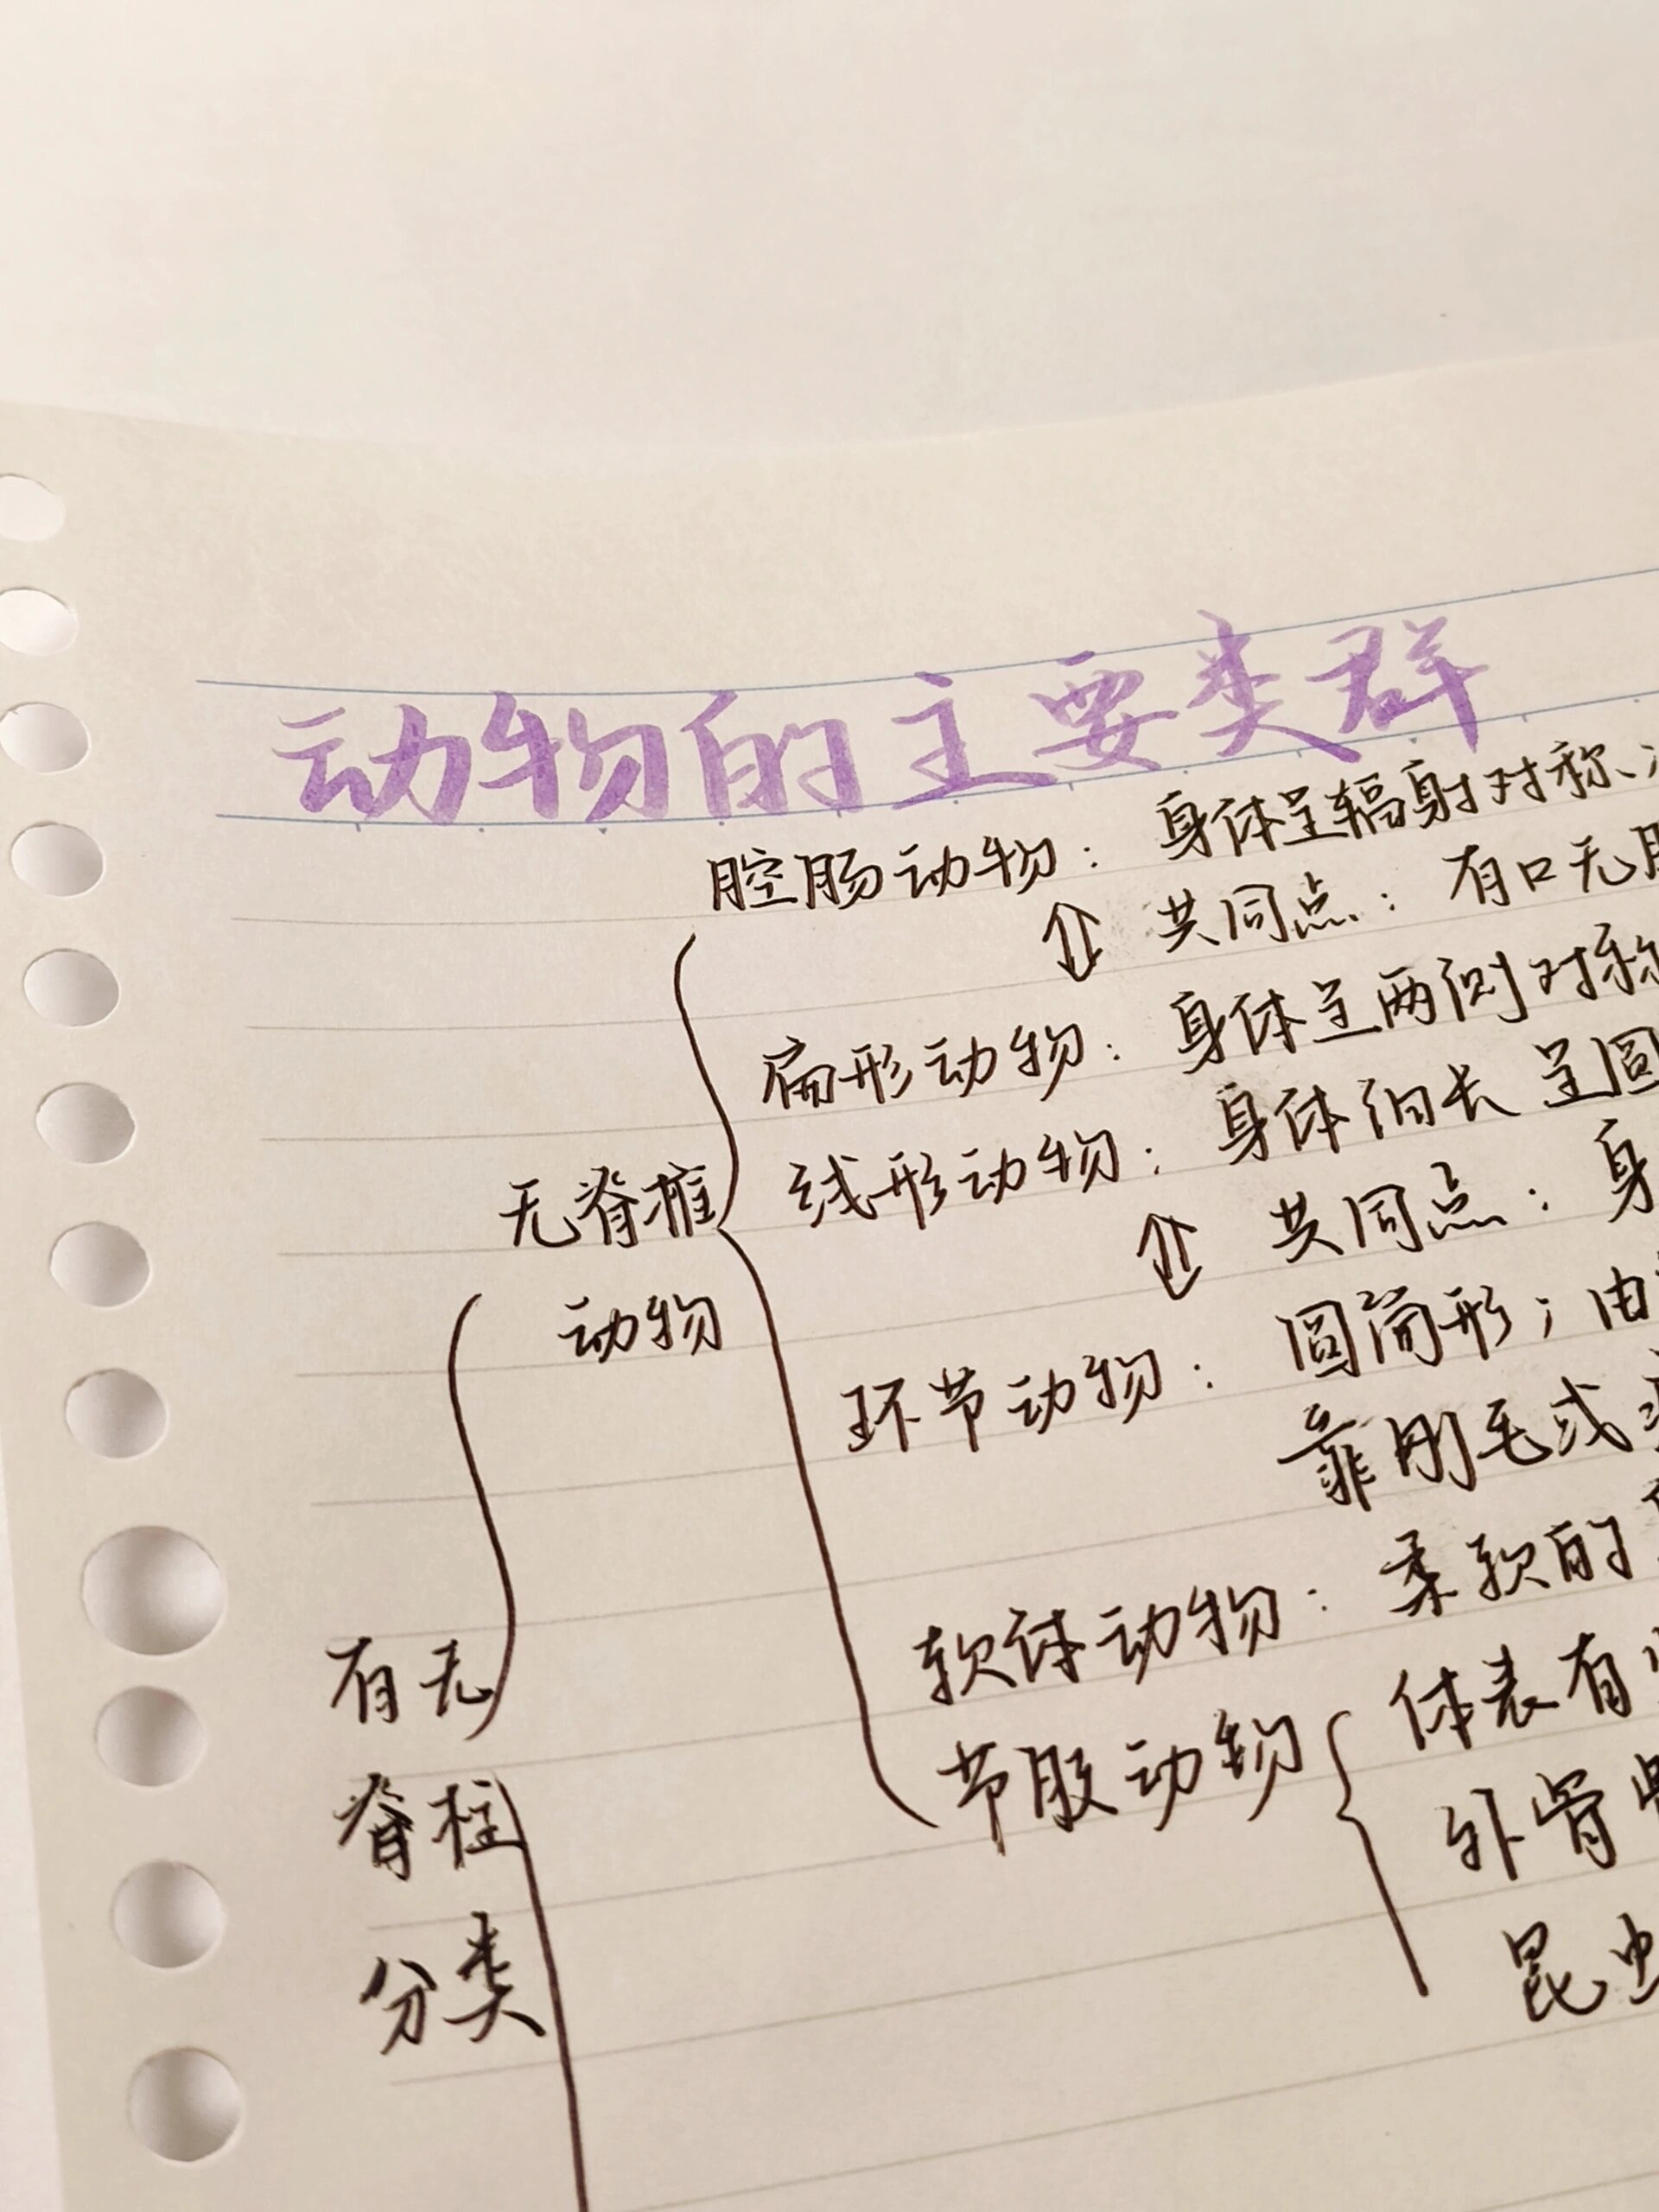 动物的主要类群
腔肠动物：身体呈辐射对称、
共同点：有口无
扁形动物：身体呈两侧对称
线形动物：身体细长 呈圆
共同点：身
无脊椎
动物
环节动物：圆筒形；由
靠刚毛或
软体动物：柔软的
节肢动物
体表有
外骨
昆虫
有无
脊柱
分类